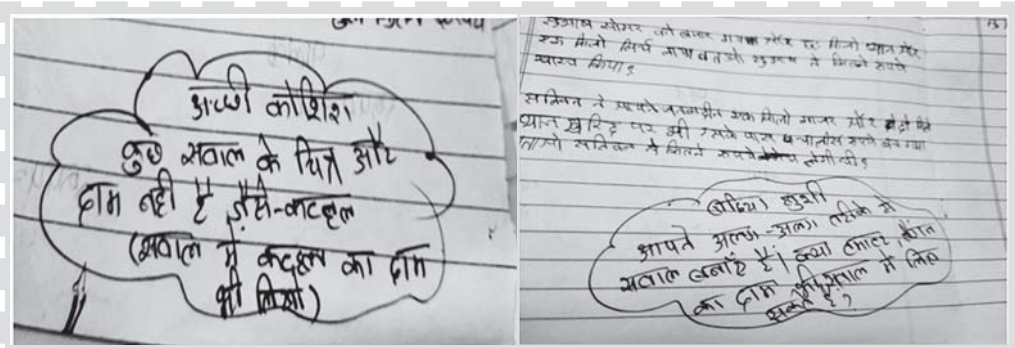 अच्छी कोशिश
कुछ सवाल के चित्र और
दाम नही है जैसे-कटहल
(सवाल में कटहल का दाम
भी लिखो)
सुभाष सोमर को बजार गया और छः किलो प्याज और
एक किलो मिर्च लाया बताओ सुभाष ने कितने रुपये
खरच किया?
एक किलो गाजर और दो किलो
प्याज खरिदा पर भी उसके पास पचालीस रुपये बच गया
कितने रुपये
(बढ़िया) खुशी
आपने अलग-अलग तरीके से
सवाल बनाएँ है। क्या टमाटर, बैंगन
का दाम भी सवाल में लिख
सकते है?